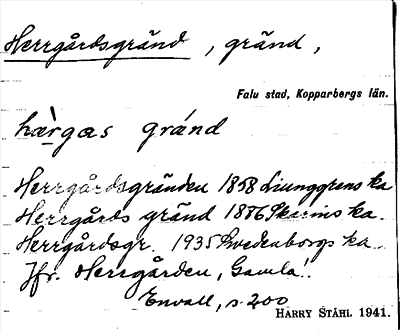 Herrgårdsgränd, gränd,
Falu stad, Kopparbergs län.
hæ̀rgas gránd
Herrgårdsgränden 1858 Ljunggrens ka
Herrgårds gränd 1886 Skarins ka.
Herrgårdsgr. 1935 Swedenborgs ka.
Jfr. Herrgården, Gamla!
Envall, s. 200
HARRY STÅHL 1941.